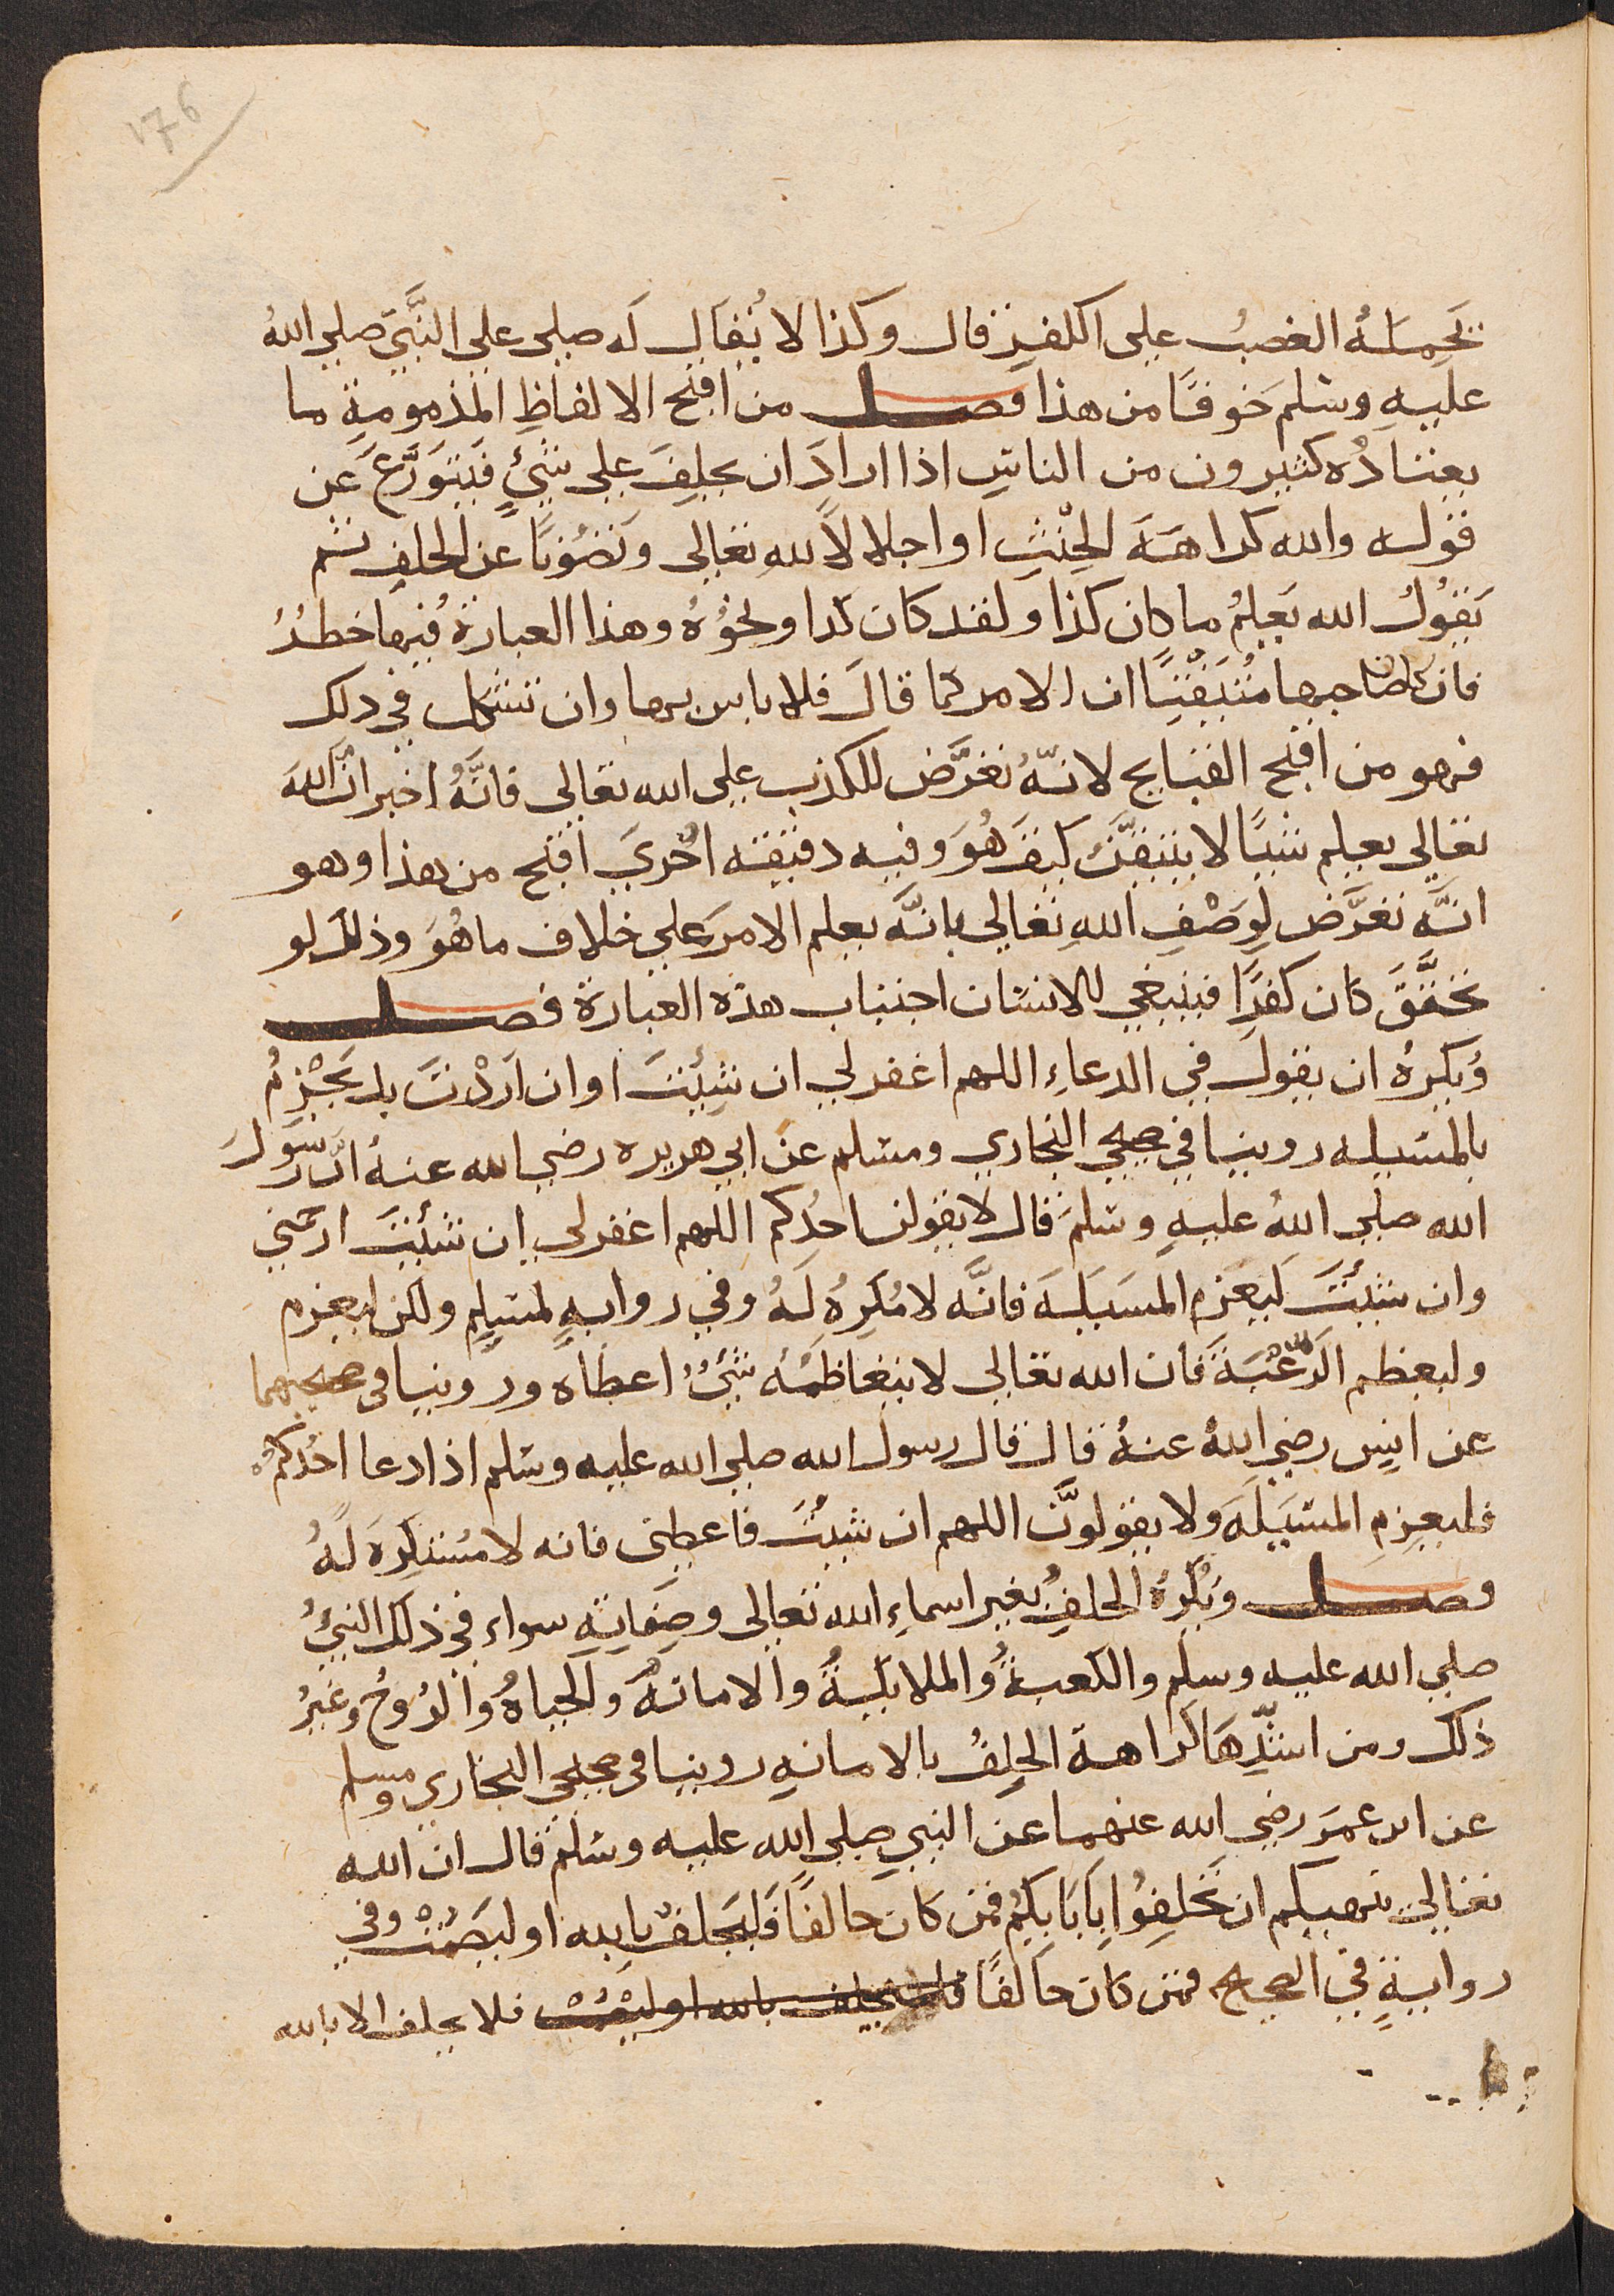 176
يَحمِلهُ الغضبُ على الكفرِ قال وكذا لا يُقال له صلى على النَّبيّ صلى اللهُ
عليهِ وسلم خوفًا من هذا فصل من اقبح الالفاظِ المذمومةِ ما
يعتادُه كثيرون من الناسِ اذا ارادَ ان يحلِفَ على شيءٍ فَيَتَوَرَّع عَن
قوله والله كراهةَ الحِنْثِ او اجلالًا للهِ تعالى وتَصَوُّنًا عن الحلفِ ثم
يَقُولُ الله يَعلمُ ما كان كذا ولقد كان كذا ونحوُهُ وهذا العبارةُ فيها خطرُ
فان كان صاحبها مُتيَقّنًا ان الامر كما قالَ فلا باس بها وان تشكل في ذلك
فهو من اقبح القبايح لانّهُ تَعَرَّض للكذب على الله تعالى فانَّهُ اخبر انّ اللهَ
تعالى يعلم شيئًا لا يتيقّنُ كيفَ هُوَ وفيه دقيقه اخرى اقبح من هذا وهو
انّه تعرَّض لِوَصْفِ اللهِ تعالى بانّه يعلم الامرَ على خلاف ما هُوَ وذلك لو
تحقَّقَ كان كفرًا فينبغي للانسان اجتناب هذه العبارة فصل
وُيكرهُ ان يقولَ في الدعاءِ اللهم اغفر لي ان شِئتَ او ان اَرَدْتَ بل يَجْزِمُ
بالمسيله روينا في صحيحي البخاري ومسلم عن ابي هريره رضي الله عنهُ انَّ رسولَ
الله صلى اللهُ عليهِ وسلمَ قال لا يقولن احدُكم اللهم اغفر لي ان شئتَ ارحمني
وان شئتَ لَيعزم المسَيلَةَ فانّه لا مُكرِهُ لَهُ وفي روايهٍ لمسلِم ولكن ليعزم
وليعظم الرّغْبَةَ فان الله تعالى لا يتعاظَمُهُ شيءٌ اعطاه وروينا في صحيحيهما
عن انيس رضي اللهُ عنهُ قال قال رسول الله صلى الله عليه وسلم اذا دعا احدُكم
فليعزِمِ المسَيلَةَ ولا يقولَنَّ اللهم ان شيتَ فاعطِني فانه لا مُستكرِهَ لَهُ
فصل ويُكرَهُ الحلفُ بغير اسماءِ الله تعالى وصِفاتِهِ سواء في ذلك النبيُّ
صلى الله عليه وسلم والكعبةُ والملايكةُ والامانةُ والحياةُ والرُوحُ وغيرُ
ذلك ومن اشدِّها كراهة الحلِفُ بالامانهِ روينا في صحيحي البخاري ومسلم
عن ابن عمرَ رضي الله عنهما عن النبي صلى الله عليه وسلم قال ان الله
تعالى ينهيكم ان تَحلِفُوا بِآبَايِكم فمن كان حالفًا فَليَحلفْ بالله او ليَصمُتْ وفي
روايةٍ في الصحيح فمن كان حالفًا فليحلف بالله او ليصمُتْ فلا يحلف الا بالله